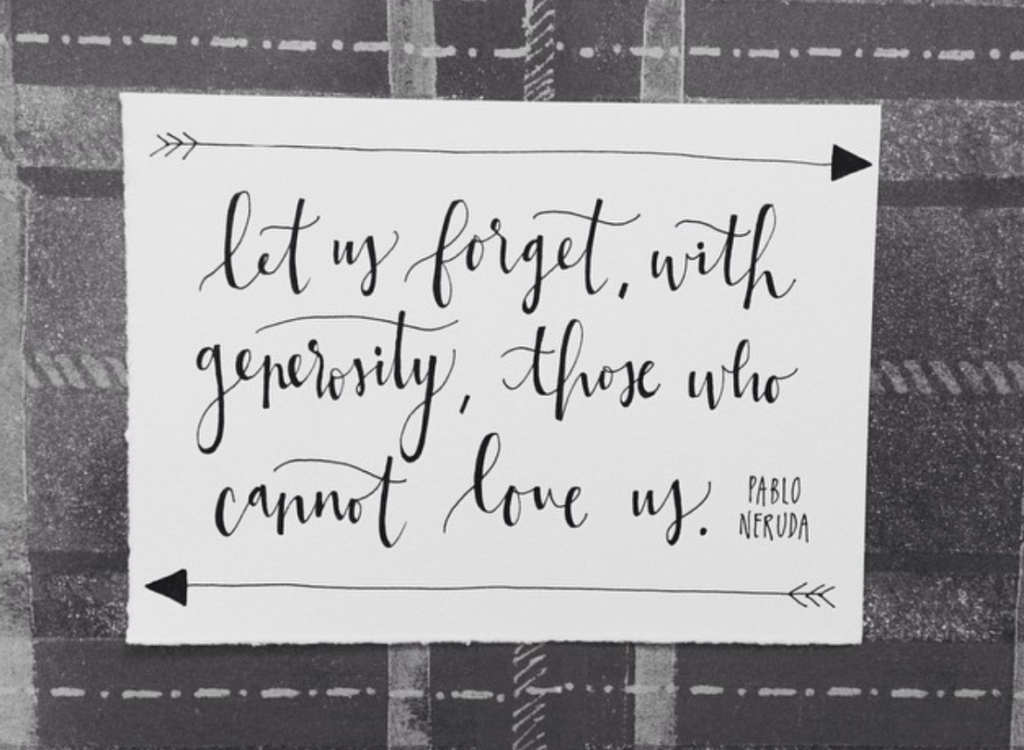 let us forget, with
generosity, those who
cannot love us.
PABLO
NERUDA